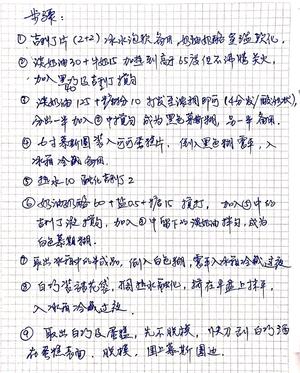 步骤:
① 吉利丁片 (2+2) 冰水泡软备用, 奶油奶酪室温软化.
② 淡奶油30+牛奶15 加热到高于65度但不沸腾关火,
加入黑巧40及吉利丁搅匀
③ 淡奶油125+糖粉10 打发至浓稠即可 (4分发/酸奶状),
分出一半加入②中搅匀 成为黑色慕斯糊, 另一半备用.
④ 6寸慕斯圈装入可可蛋糕片, 倒入黑色糊 震平, 入
冰箱冷藏备用.
⑤ 热水10 融化吉利丁2
⑥ 奶油奶酪60+盐0.5+糖15 搅打, 加入⑤中的
吉利丁液搅匀, 加入③中留下的淡奶油拌匀, 成为
白色慕斯糊.
⑦ 取出冰箱中的半成品, 倒入白色糊, 震平入冰箱冷藏过夜
⑧ 白巧装裱花袋, 隔热水融化, 挤在平盘上抹平,
入冰箱冷藏过夜.
⑨ 取出白巧及蛋糕, 先不脱模, 快刀刮白巧洒
在蛋糕表面. 脱模, 围上慕斯围边.